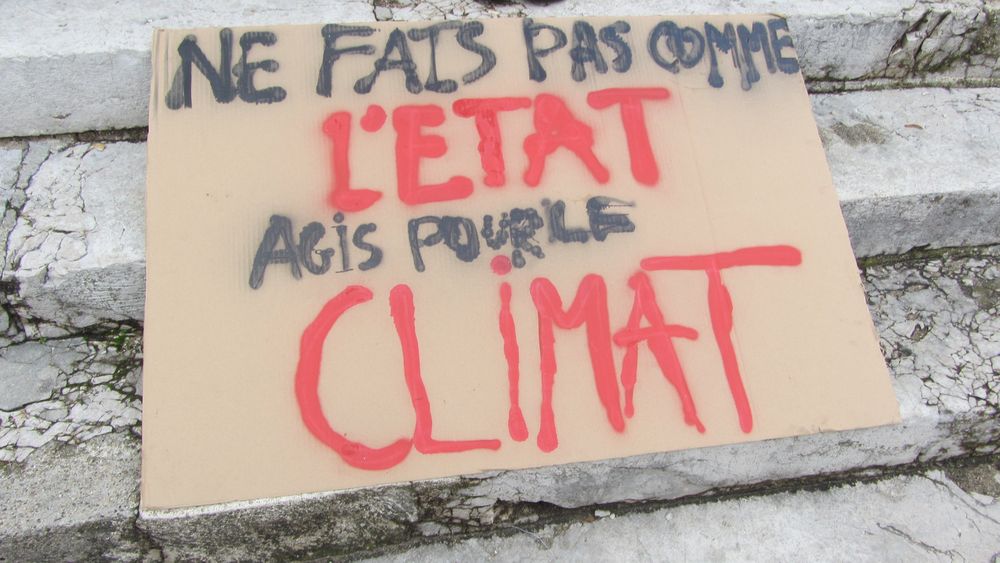 NE FAIS PAS COMME
L'ETAT
AGIS POUR LE
CLIMAT